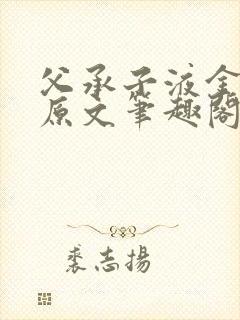 父承子液全
原文笔趣阁
裘志扬